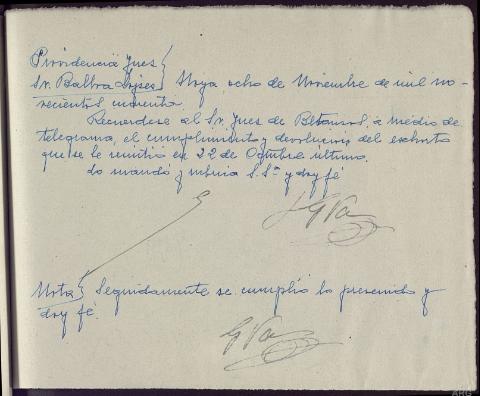 Providencia Jues
Sr. Balboa López } Noya ocho de Noviembre de mil no-
vecientos cuarenta.
Recuerdese al Sr. Jues de Betanzos, a medio de
telegrama, el cumplimiento y devolucion del exhorto
que se le remitió en 22 de Octubre último.
Lo mandó y rubrica S.Sª y doy fé
Nota } Seguidamente se cumplió lo prevenido y
doy fé.
ARG